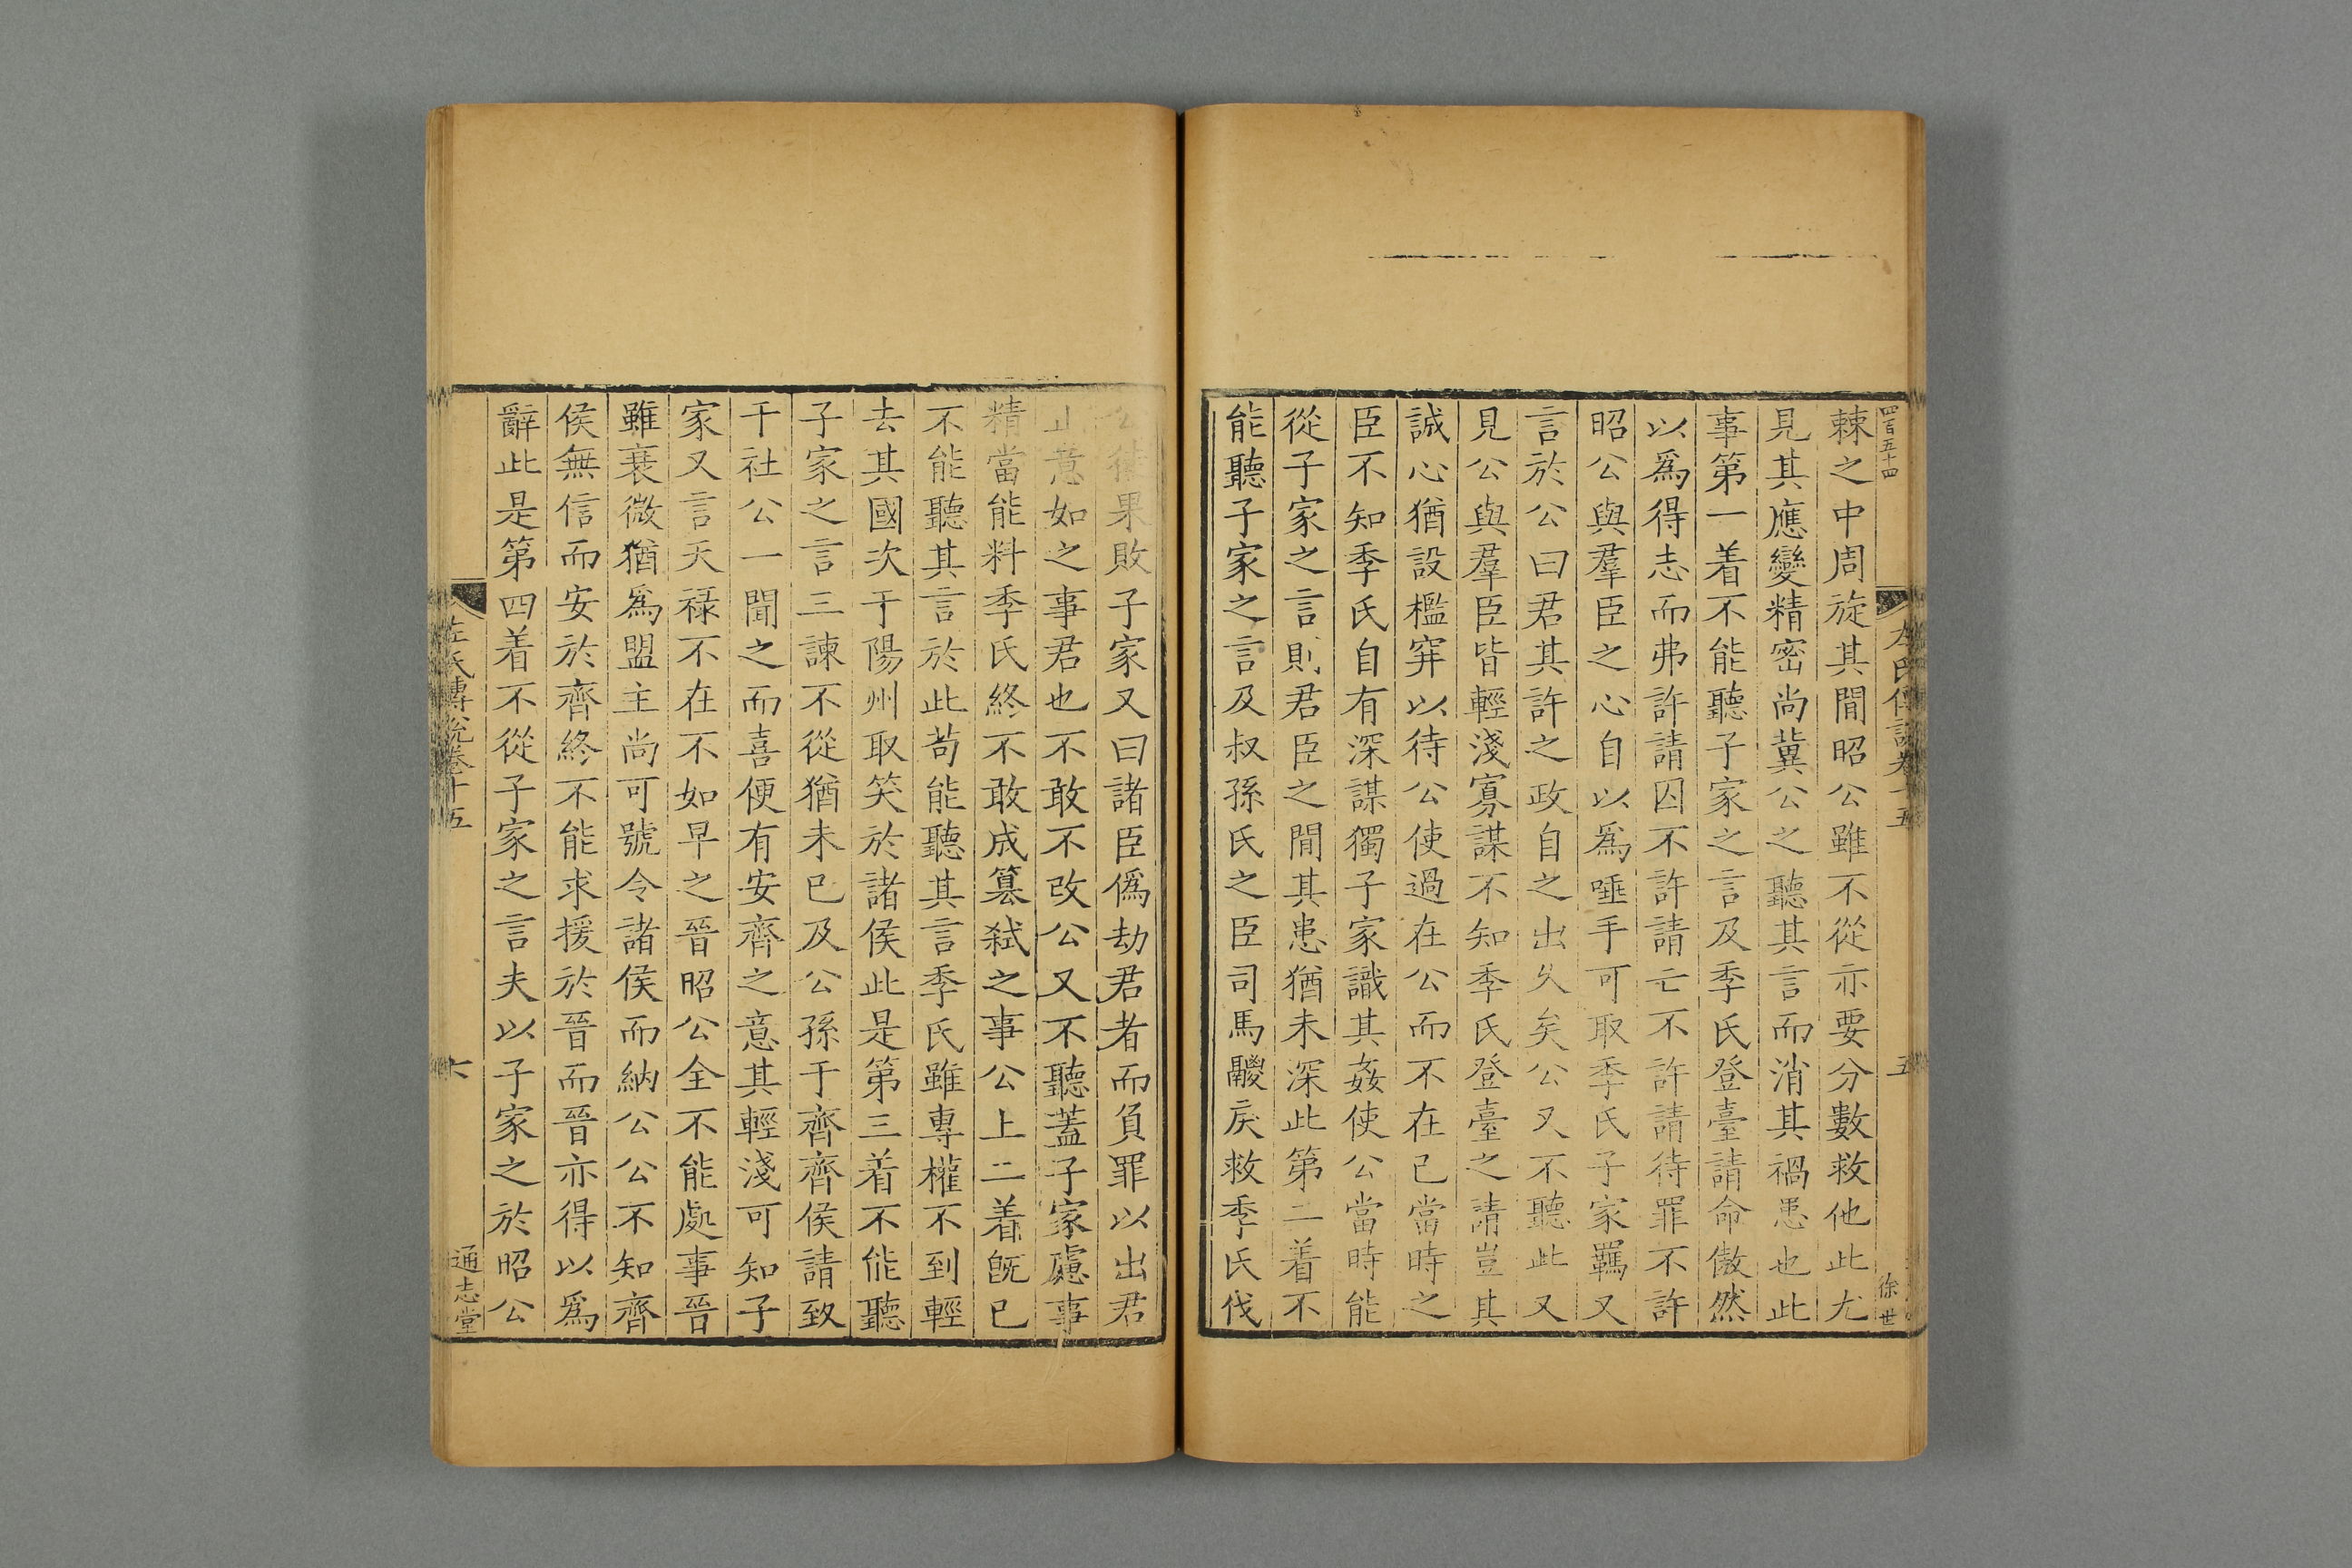 四百五十四
左氏傳說卷十五
五
徐世
棘之中周旋其間昭公雖不從亦要分數救他此尤
見其應變精密尚冀公之聽其言而消其禍患也此
事第一着不能聽子家之言及季氏登臺請命傲然
以爲得志而弗許請囚不許請亡不許請待罪不許
昭公與羣臣之心自以爲唾手可取季氏子家羈又
言於公曰君其許之政自之出久矣公又不聽此又
見公與羣臣皆輕淺寡謀不知季氏登臺之請豈其
誠心猶設檻穽以待公使過在公而不在己當時之
臣不知季氏自有深謀獨子家識其姦使公當時能
從子家之言則君臣之間其患猶未深此第二着不
能聽子家之言及叔孫氏之臣司馬鬷戾救季氏伐
公徒果敗子家又曰諸臣僞劫君者而負罪以出君
止意如之事君也不敢不改公又不聽蓋子家慮事
精當能料季氏終不敢成篡弑之事公上二着旣已
不能聽其言於此苟能聽其言季氏雖專權不到輕
去其國次于陽州取笑於諸侯此是第三着不能聽
子家之言三諫不從猶未已及公孫于齊齊侯請致
千社公一聞之而喜便有安齊之意其輕淺可知子
家又言天祿不在不如早之晉昭公全不能處事晉
雖衰微猶爲盟主尚可號令諸侯而納公公不知齊
侯無信而安於齊終不能求援於晉而晉亦得以爲
辭此是第四着不從子家之言夫以子家之於昭公
左氏傳說卷十五
六
通志堂